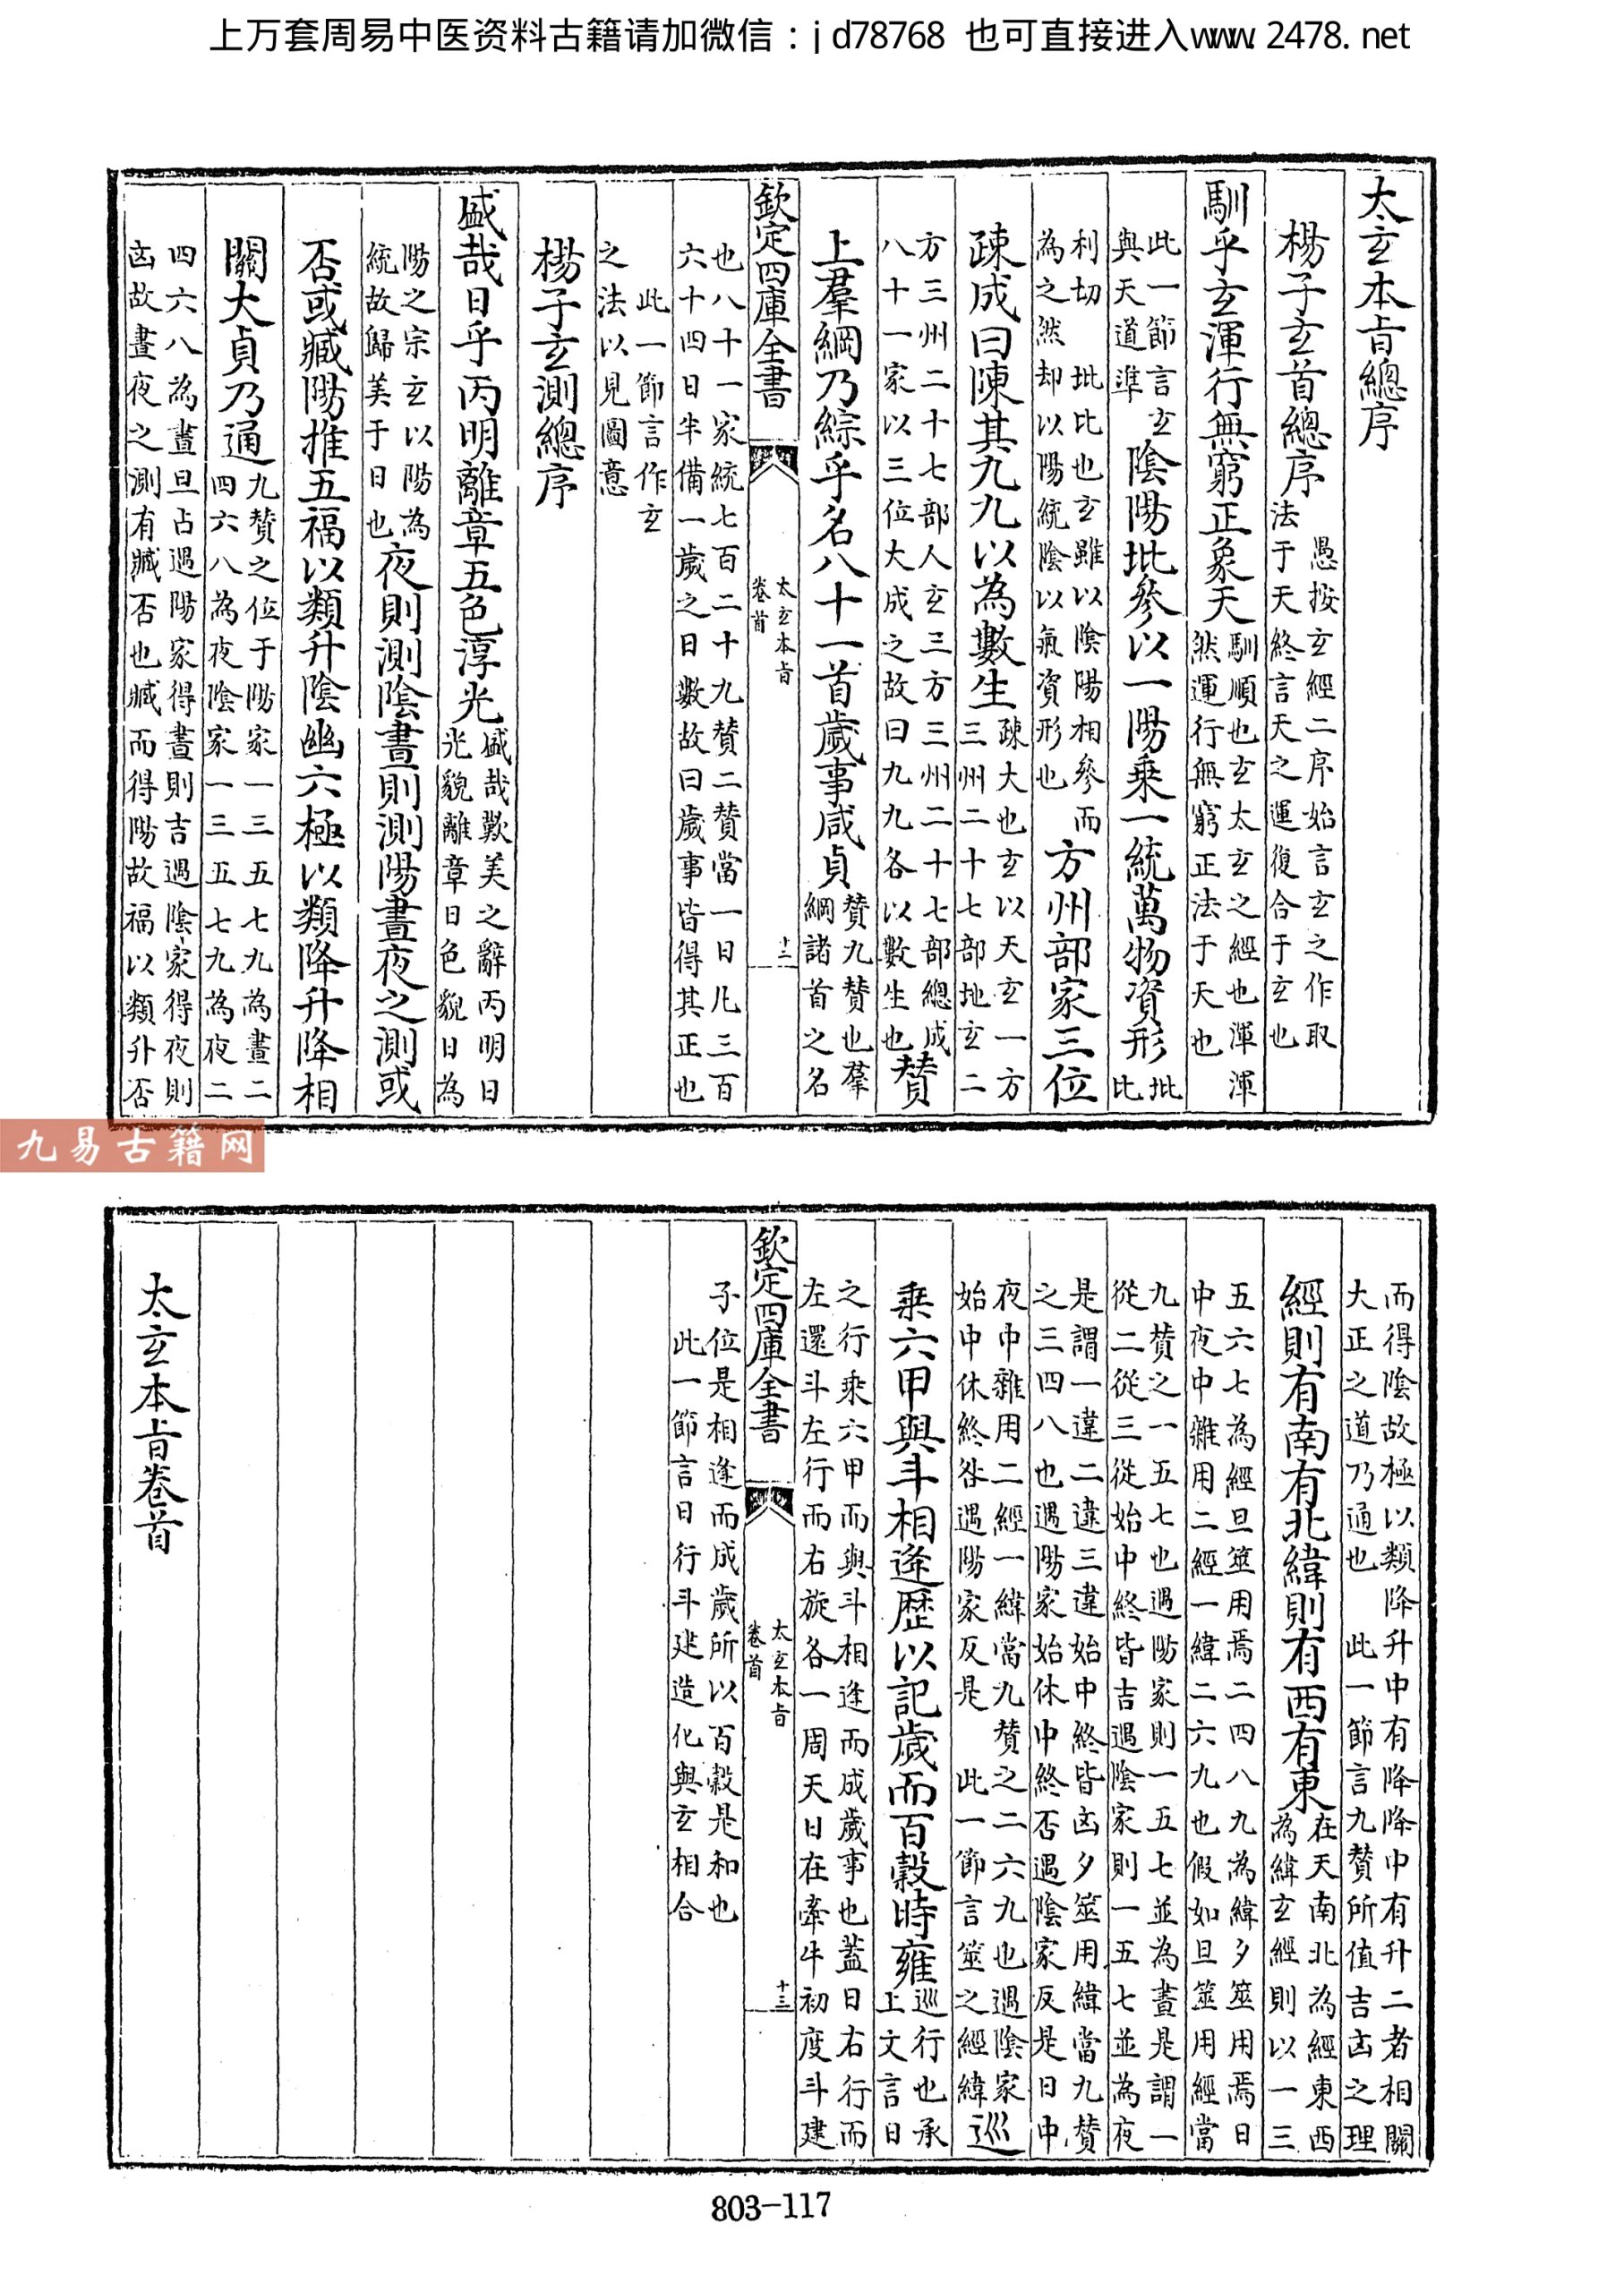 上万套周易中医资料古籍请加微信：jd78768 也可直接进入www.2478.net
太玄本旨總序
楊子玄首總序愚按玄經二序始言玄之作取法于天終言天之運復合于玄也
馴乎玄渾行無窮正象天馴順也玄太玄之經也渾渾然運行無窮正法于天也
此一節言玄與天道準陰陽坒參以一陽乗一統萬物資形坒比
利切 坒比也玄雖以陰陽相參而為之然却以陽統陰以氣資形也方州部家三位
疎成曰陳其九九以為數生疎大也玄以天玄一方三州二十七部地玄二
方三州二十七部人玄三方三州二十七部總成八十一家以三位大成之故曰九九各以數生也贊
上羣綱乃綜乎名八十一首歲事咸貞贊九贊也羣綱諸首之名
欽定四庫全書 太玄本旨 卷首 十二
也八十一家統七百二十九贊二贊當一日凡三百六十四日半備一歲之日數故曰歲事皆得其正也
此一節言作玄之法以見圖意
楊子玄測總序
盛哉日乎丙明離章五色淳光盛哉歎美之辭丙明日光貌離章日色貌日為
陽之宗玄以陽為統故歸美于日也夜則測陰晝則測陽晝夜之測或
否或臧陽推五福以類升陰幽六極以類降升降相
關大貞乃通九贊之位于陽家一三五七九為晝二四六八為夜陰家一三五七九為夜二
四六八為晝旦占遇陽家得晝則吉遇陰家得夜則凶故晝夜之測有臧否也臧而得陽故福以類升否
九易古籍网
而得陰故極以類降升中有降降中有升二者相關大正之道乃通也 此一節言九贊所值吉凶之理
經則有南有北緯則有西有東在天南北為經東西為緯玄經則以一三
五六七為經旦筮用焉二四八九為緯夕筮用焉日中夜中雜用二經一緯二六九也假如旦筮用經當
九贊之一五七也遇陽家則一五七並為晝是謂一從二從三從始中終皆吉遇陰家則一五七並為夜
是謂一違二違三違始中終皆凶夕筮用緯當九贊之三四八也遇陽家始休中終否遇陰家反是日中
夜中雜用二經一緯當九贊之二六九也遇陰家始中休終咎遇陽家反是 此一節言筮之經緯巡
乗六甲與斗相逢歴以記歲而百穀時雍巡行也承上文言日
之行乗六甲而與斗相逢而成歲事也蓋日右行而左還斗左行而右旋各一周天日在牽牛初度斗建
欽定四庫全書 太玄本旨 卷首 十三
子位是相逢而成歲所以百穀是和也
此一節言日行斗建造化與玄相合
太玄本旨卷首
803-117